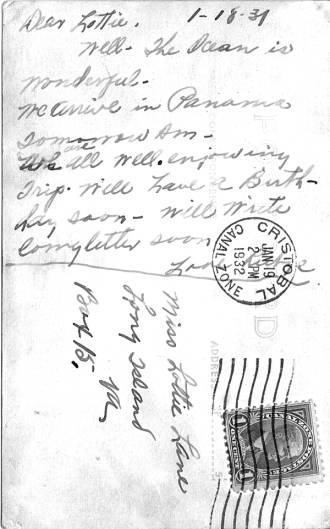 Dear Lottie. 1-18-31
Well- The Ocean is
wonderful-
We arrive in Panama
tomorrow Am-
are all well. enjoying
Trip. Will have a Birth-
day soon- Will Write
long letter soon
CRISTOBAL
JAN 19
2 PM
1932
CANAL ZONE
Miss Lottie Lane
Long Island
Box 15. Va
ADDRESS